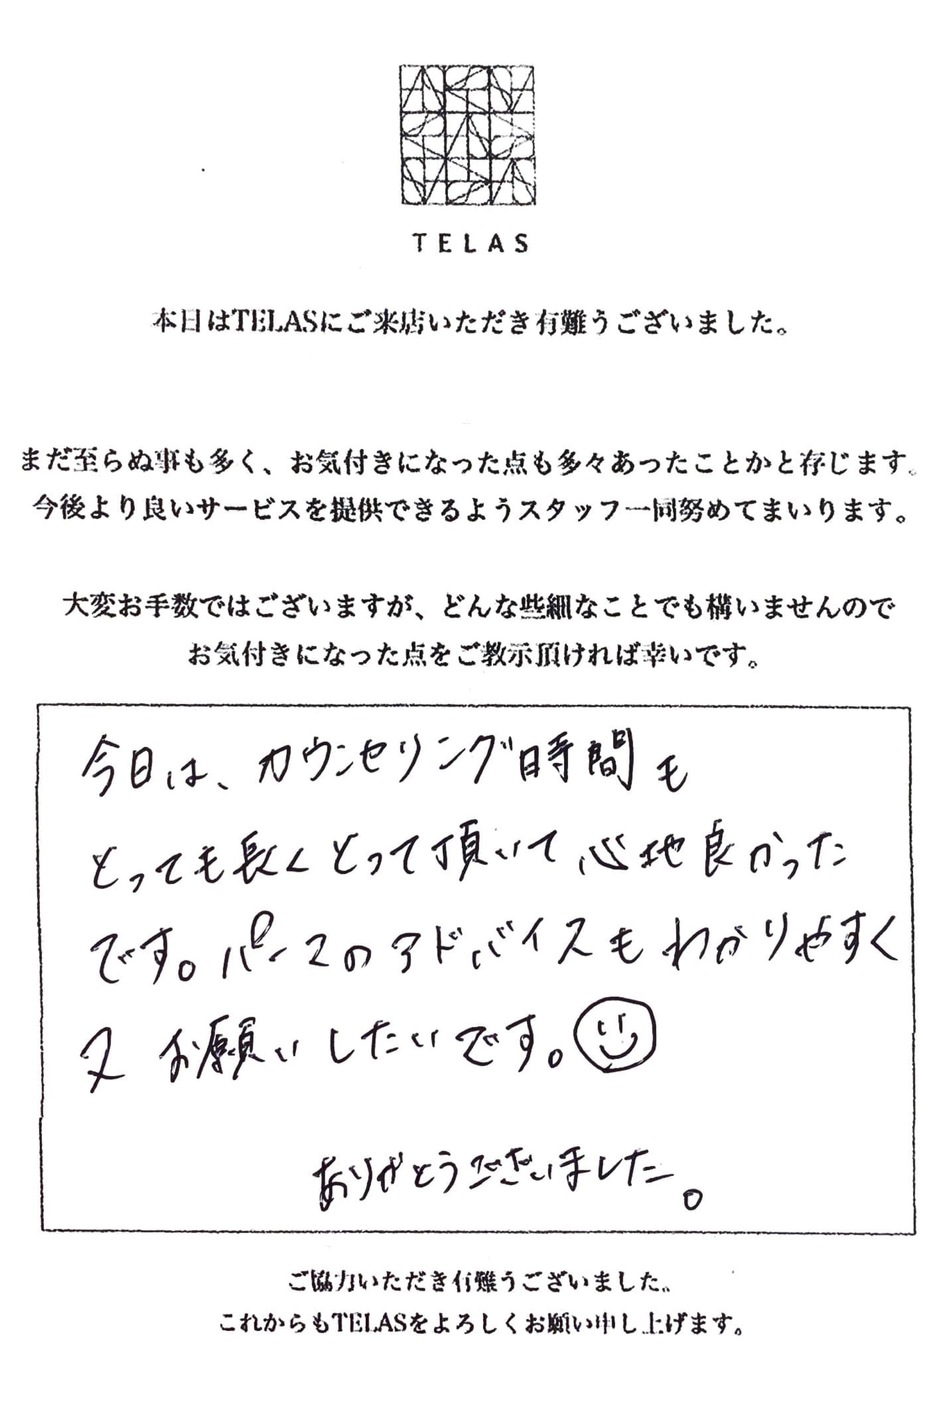 TELAS
本日はTELASにご来店いただき有難うございました。
まだ至らぬ事も多く、お気付きになった点も多々あったことかと存じます。
今後より良いサービスを提供できるようスタッフ一同努めてまいります。
大変お手数ではございますが、どんな些細なことでも構いませんので
お気付きになった点をご教示頂ければ幸いです。
今日は、カウンセリング時間も
とっても長くとって頂いて心地良かった
です。パーマのアドバイスもわかりやすく
又お願いしたいです。
ありがとうございました。
ご協力いただき有難うございました。
これからもTELASをよろしくお願い申し上げます。